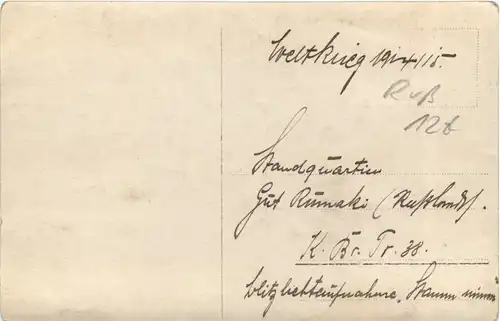 Weltkrieg 1914/15.
Ruß
12t
Standquartier
Gut Rumaki (Russland).
K. Br. Tr. 38.
Blitzlichtaufnahme "Stamm